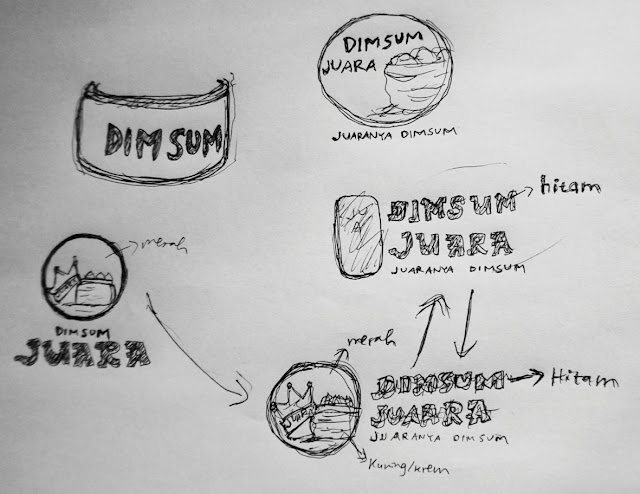 DIMSUM
JUARA
JUARANYA DIMSUM
DIMSUM
DIMSUM
JUARA
JUARANYA DIMSUM
hitam
merah
DIMSUM
JUARA
merah
JUARA
DIMSUM
JUARA
JUARANYA DIMSUM
Hitam
Kuning/krem